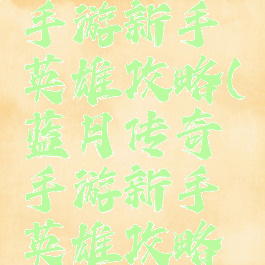 手游新手
英雄攻略(
蓝月传奇
手游新手
英雄攻略